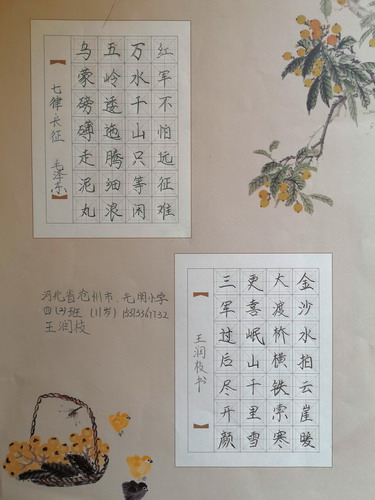 红军不怕远征难
万水千山只等闲
五岭逶迤腾细浪
乌蒙磅礴走泥丸
七律长征 毛泽东
河北省沧州市 小学
四 班 (11岁)
王润枝
金沙水拍云崖暖
大渡桥横铁索寒
更喜岷山千里雪
三军过后尽开颜
王润枝书